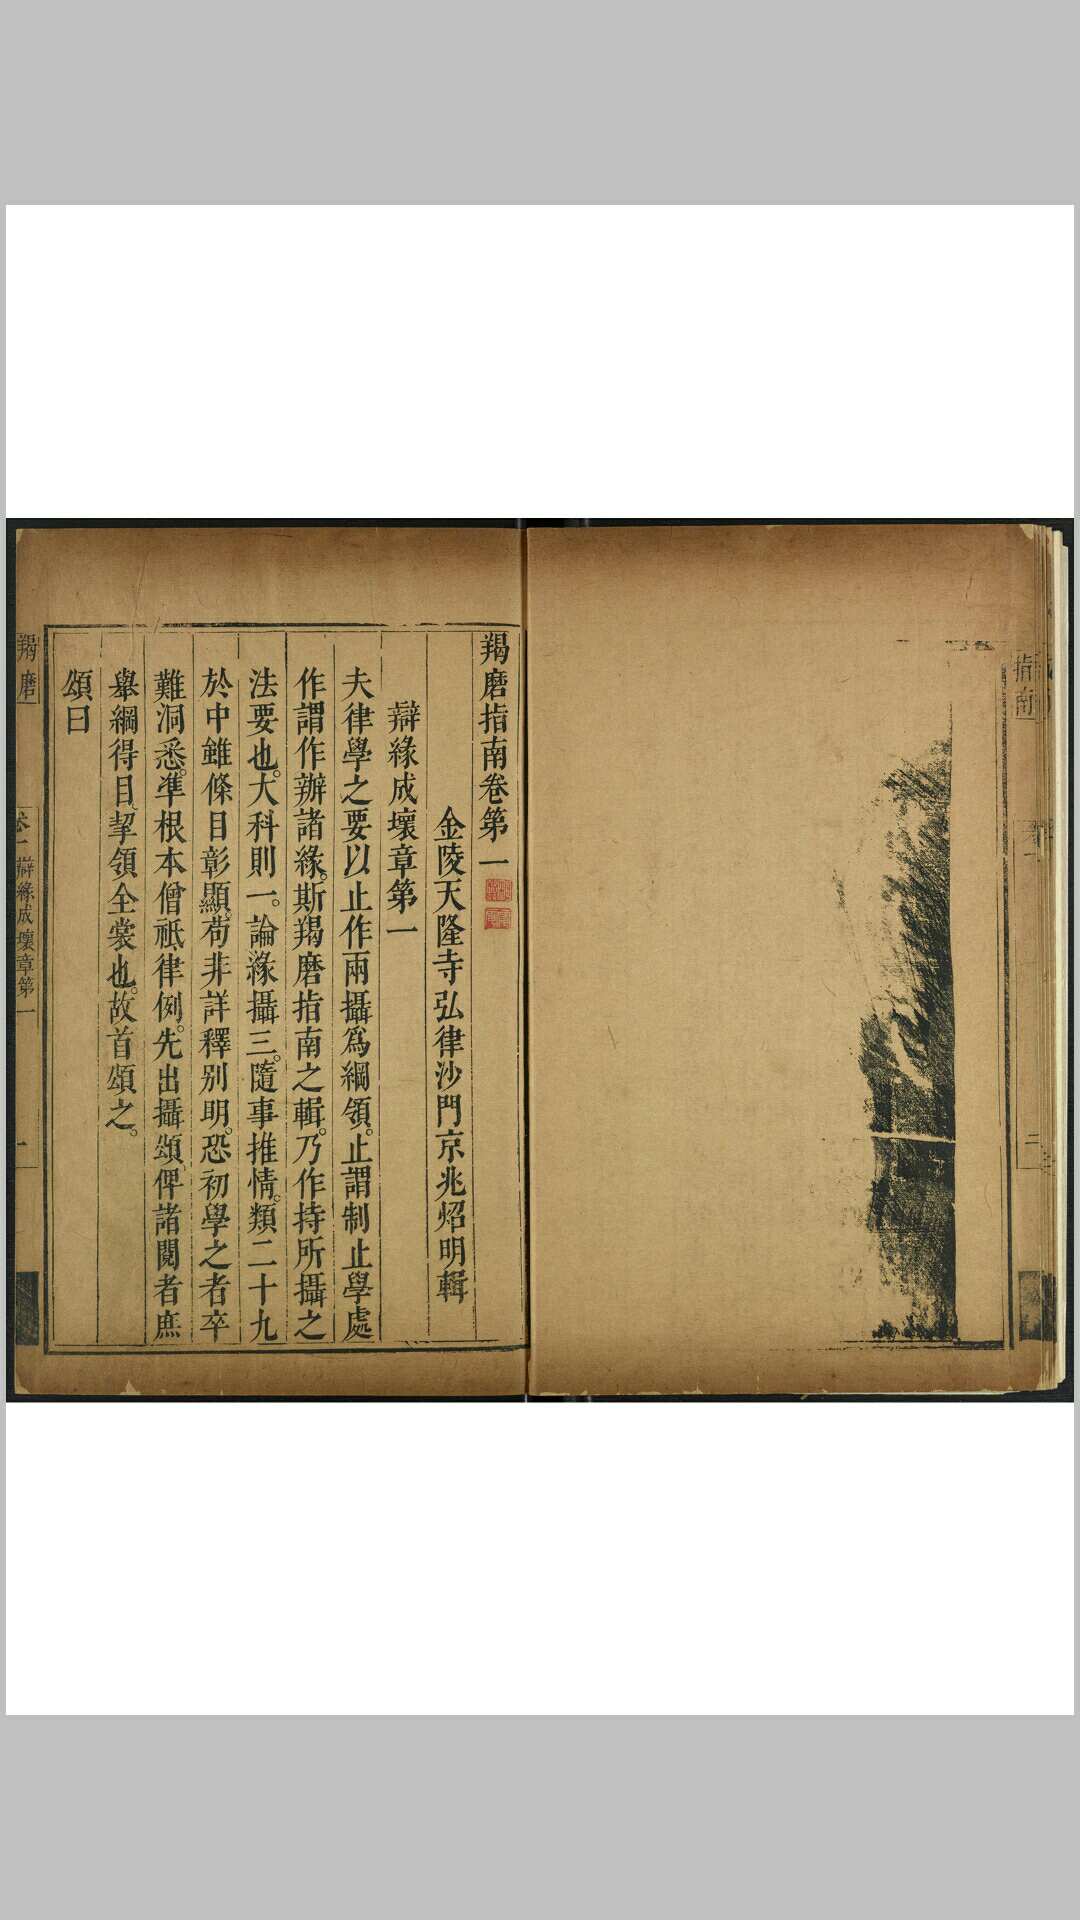 指南
一
二
羯磨指南卷第一
金陵天隆寺弘律沙門京兆炤明輯
辯緣成壞章第一
夫律學之要以止作兩攝爲綱領。止謂制止學處
作謂作辦諸緣。斯羯磨指南之輯。乃作持所攝之
法要也。大科則一。論緣攝三。隨事推情。類二十九
於中雖條目彰顯。苟非詳釋別明。恐初學之者卒
難洞悉。準根本僧祇律例。先出攝頌俾諸閱者庶
舉綱得目、挈領全裳也。故首頌之。
頌曰
羯磨
卷一 辯緣成壞章第一
一